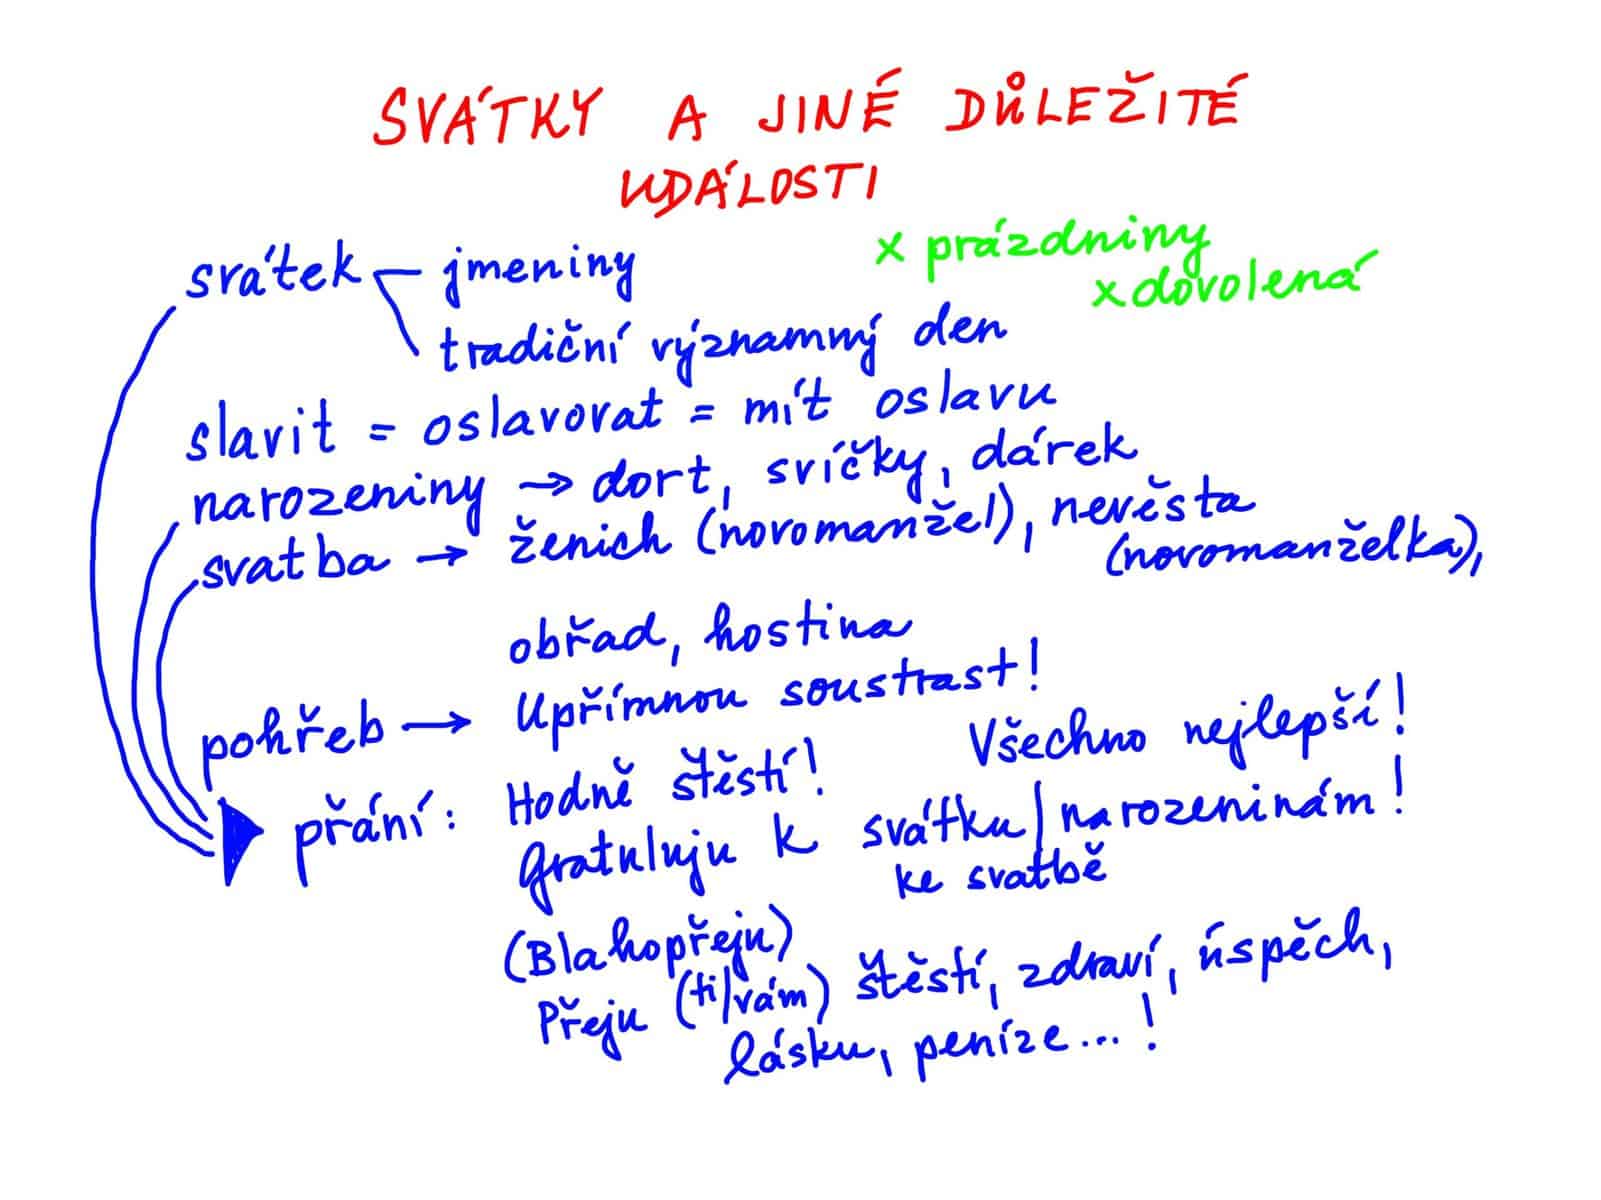 SVÁTKY A JINÉ DŮLEŽITÉ
UDÁLOSTI
x prázdniny
x dovolená
svátek jmeniny
tradiční významný den
slavit = oslavovat = mít oslavu
narozeniny → dort, svíčky, dárek
svatba → ženich (novomanžel), nevěsta
(novomanželka),
obřad, hostina
pohřeb → Upřímnou soustrast!
přání: Hodně štěstí! Všechno nejlepší!
Gratuluju k svátku / narozeninám!
ke svatbě
(Blahopřeju)
Přeju (ti/vám) štěstí, zdraví, úspěch,
lásku, peníze...!